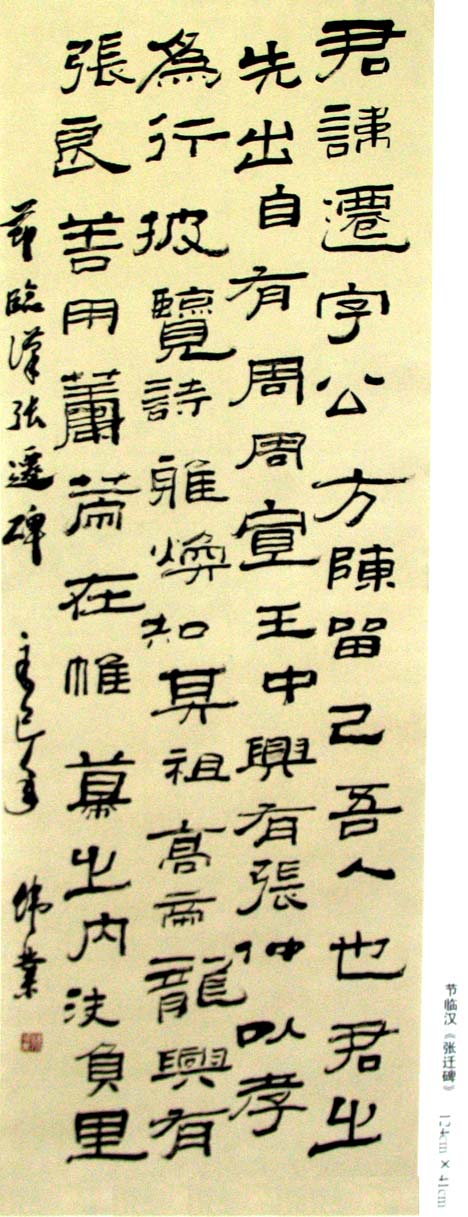 君諱遷字公方陳留己吾人也君之
先出自有周周宣王中興有張仲以孝
為行披覽詩雅煥知其祖高帝龍興有
張良善用籌策在帷幕之內決負里
節臨漢張遷碑 辛巳年 偉業
节临汉《张迁碑》 124cm×41cm